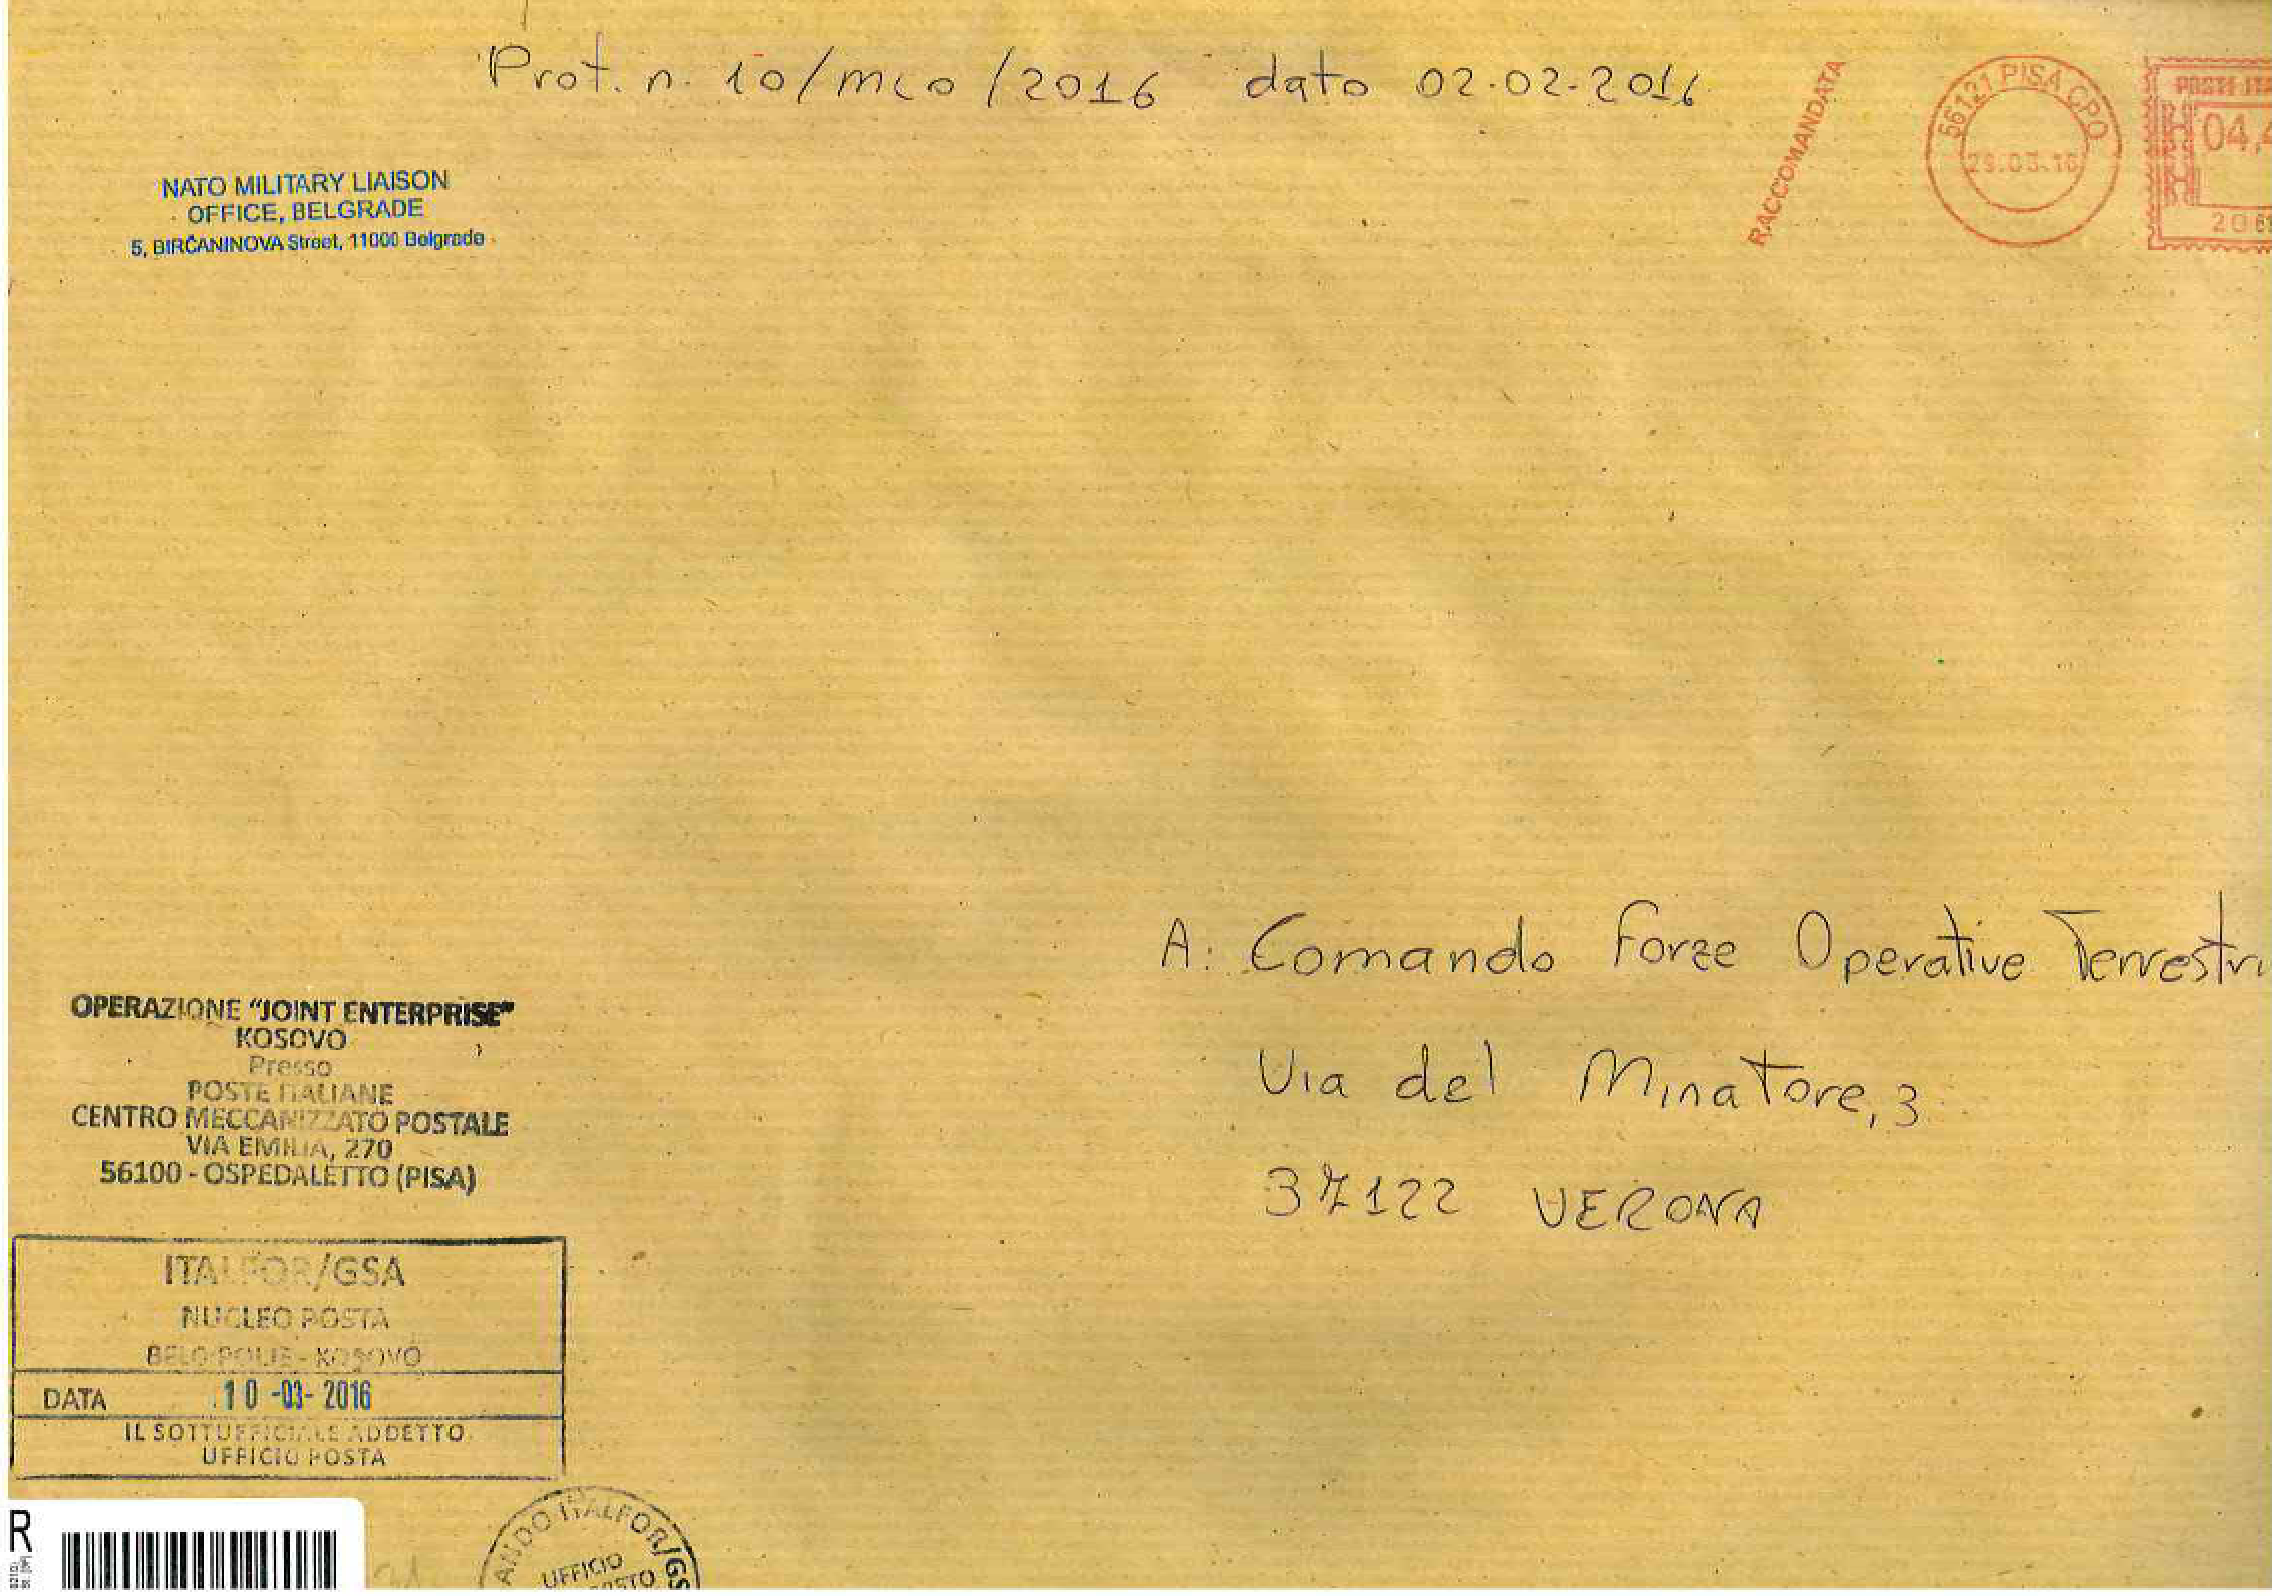 Prot. n. 10/MLO/2016 dato 02.02.2016
RACCOMANDATA
56121 PISA CPO
29.03.16
POSTE ITA
04,4
206
NATO MILITARY LIAISON
OFFICE, BELGRADE
5, BIRČANINOVA Street, 11000 Belgrade
A: Comando Forze Operative Terrestri
Via del Minatore, 3
37122 VERONA
OPERAZIONE "JOINT ENTERPRISE"
KOSOVO
Presso
POSTE ITALIANE
CENTRO MECCANIZZATO POSTALE
VIA EMILIA, 270
56100 - OSPEDALETTO (PISA)
ITALFOR/GSA
NUCLEO POSTA
BELO POLJE - KOSOVO
DATA 10 -03- 2016
IL SOTTUFFICIALE ADDETTO
UFFICIO POSTA
R
ANDO ITALFOR/GS
UFFICIO